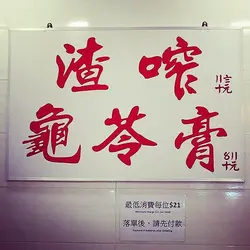 渣咋
龜苓膏
最低消費每位$21
落單後，請先付款